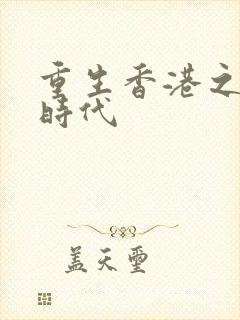 重生香港之
時代
蓋天璽